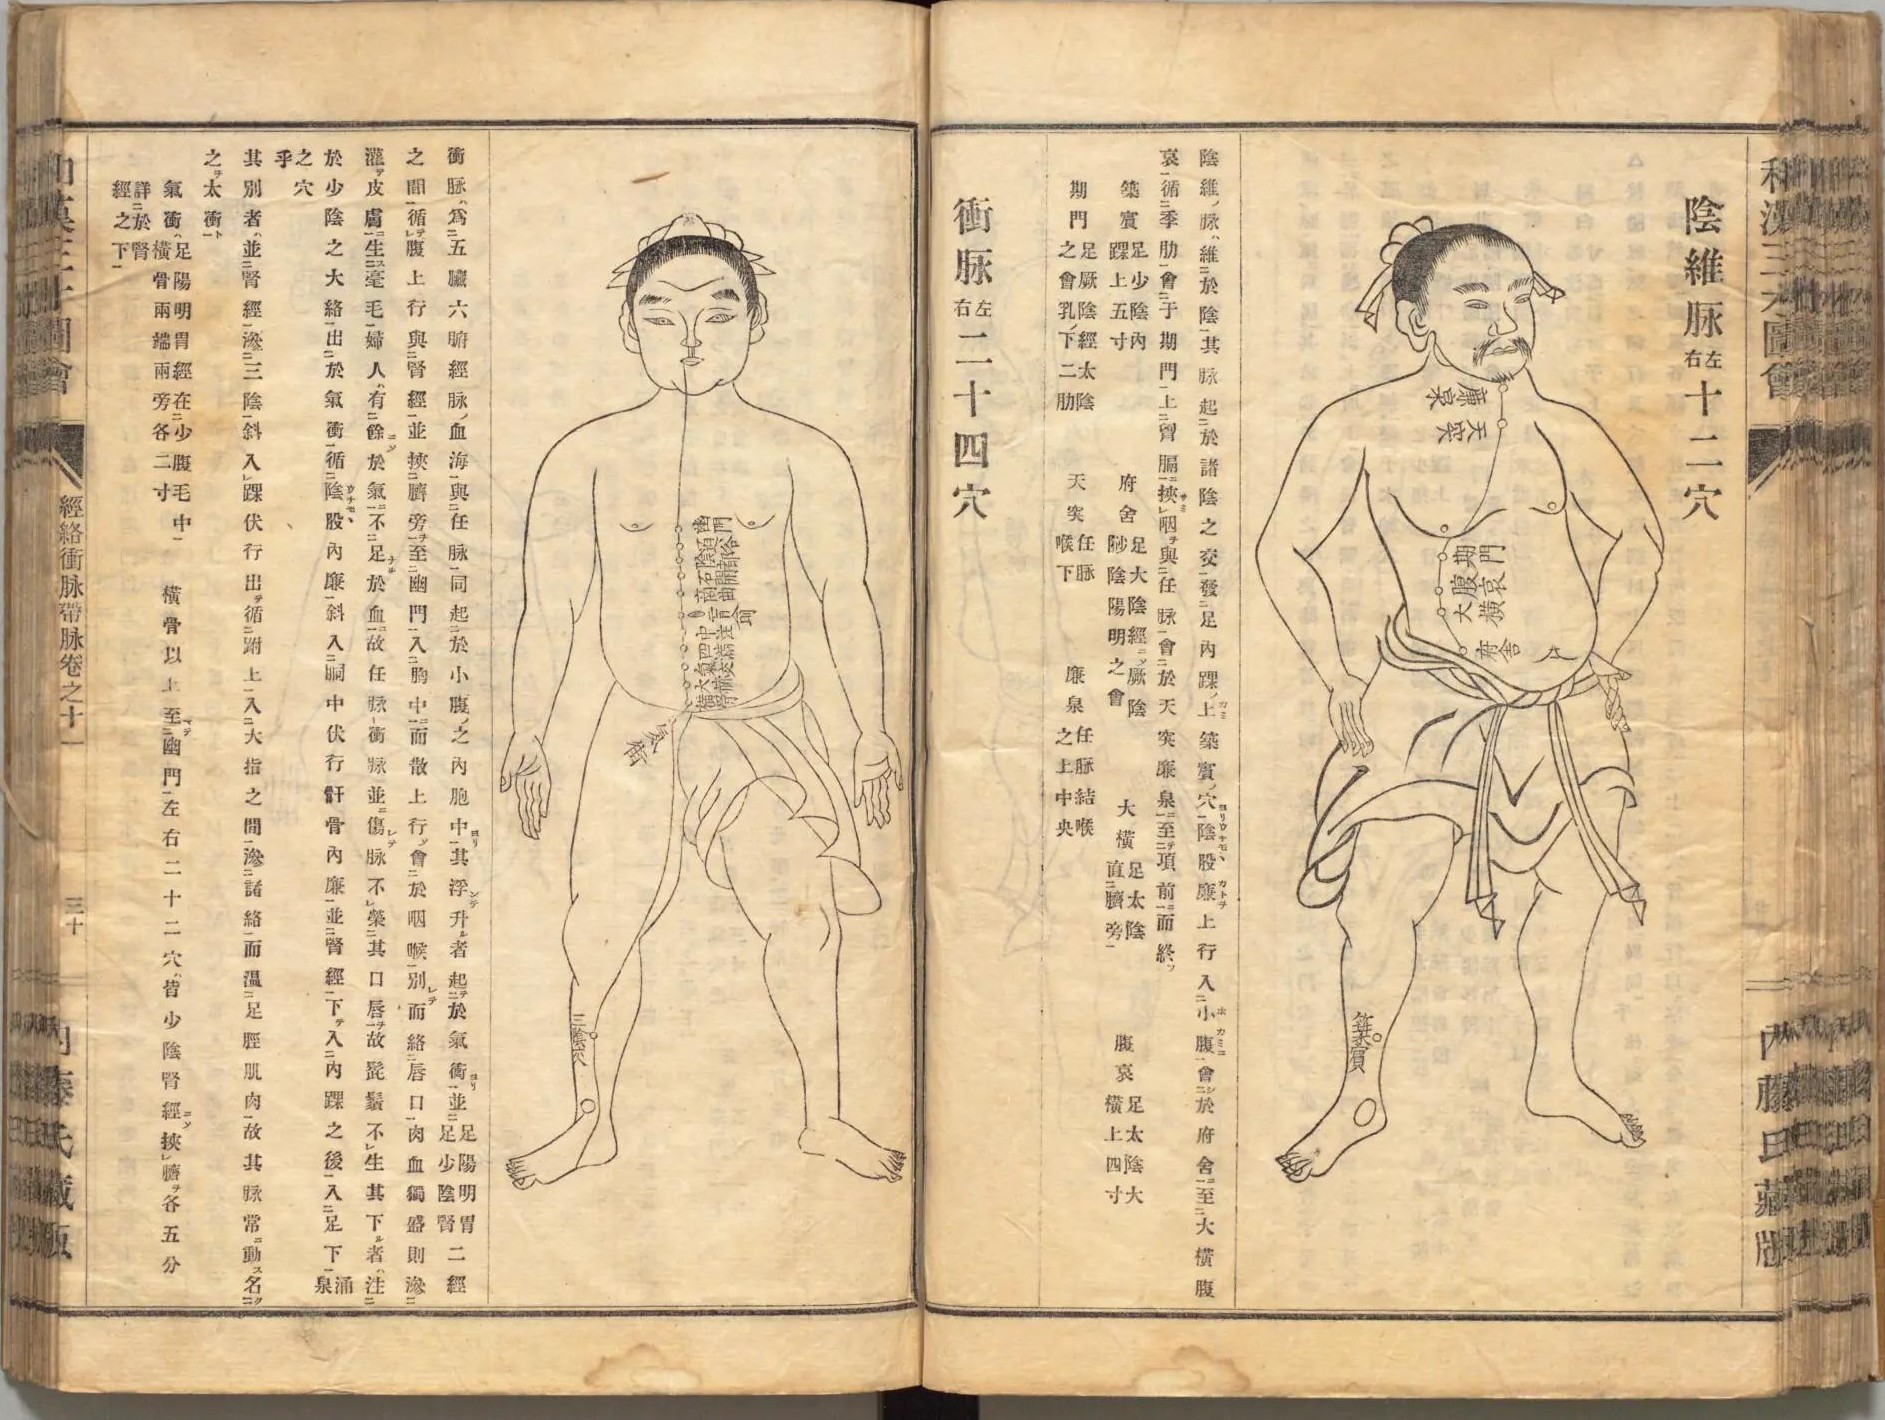 和漢三才圖會
內藤氏藏版
陰維脉左右十二穴
廉泉
天突
期門
腹哀
大橫
府舍
築賓
陰維ノ脉ハ維ニ於陰一其脉起ニ於諸陰之交一發ニ足內踝ノ上築賓ノ穴一陰股廉上行入ニ小腹一會ニ於府舍一至ニ大橫腹
哀一循ニ季肋一會ニ于期門一上ニ胷膈一挾レ咽ヲ與ニ任脉一會ニ於天突廉泉一至ニ項前一而終
築賓 足少陰內踝上五寸
府舍 足大陰經ニノ厥陰陰陽明之會
大橫 足太陰直ニ臍旁一
腹哀 足太陰大橫上四寸
期門 足厥陰經太陰之會乳ノ下二肋
天突 任脉喉下
廉泉 任脉結喉之上中央
衝脉左右二十四穴
氣衝
三陰交
衝脉ハ爲ニ五臟六腑經脉ノ血海一與ニ任脉一同起ニ於小腹ノ之內胞中一其浮升ル者起ニ於氣衝一並ニ足陽明胃足少陰腎二經
之間一循レ腹上行與ニ腎經一並挾ニ臍旁一至ニ幽門一入ニ胸中一而散上行會ニ於咽喉一別而絡ニ唇口一肉血獨盛則滲ニ
灌皮膚一生ニ毫毛一婦人ハ有ニ餘於氣一不ニ足於血一故任脉衝脉並ニ傷レ脉不レ榮ニ其口唇一故髭鬚不レ生其下ル者ハ注ニ
於少陰之大絡一出ニ於氣衝一循ニ陰股內廉一斜入ニ膕中伏行骭骨內廉一並ニ腎經一下入ニ內踝之後一入ニ足下一涌泉
之穴乎
其別者ハ並ニ腎經一滲ニ三陰一斜入レ踝伏行出循ニ跗上一入ニ大指之間一滲ニ諸絡一而溫ニ足脛肌肉一故其脉常ニ動ス名ニ
之太衝一
氣衝ハ足陽明胃經在ニ少腹毛中一橫骨兩端兩旁各二寸 橫骨以上至ニ幽門一左右二十二穴ハ皆少陰腎經ニノ挾レ臍各五分
詳ニ於腎經之下一
和漢三才圖會
經絡衝脉帶脉卷之十一
三十
內藤氏藏版